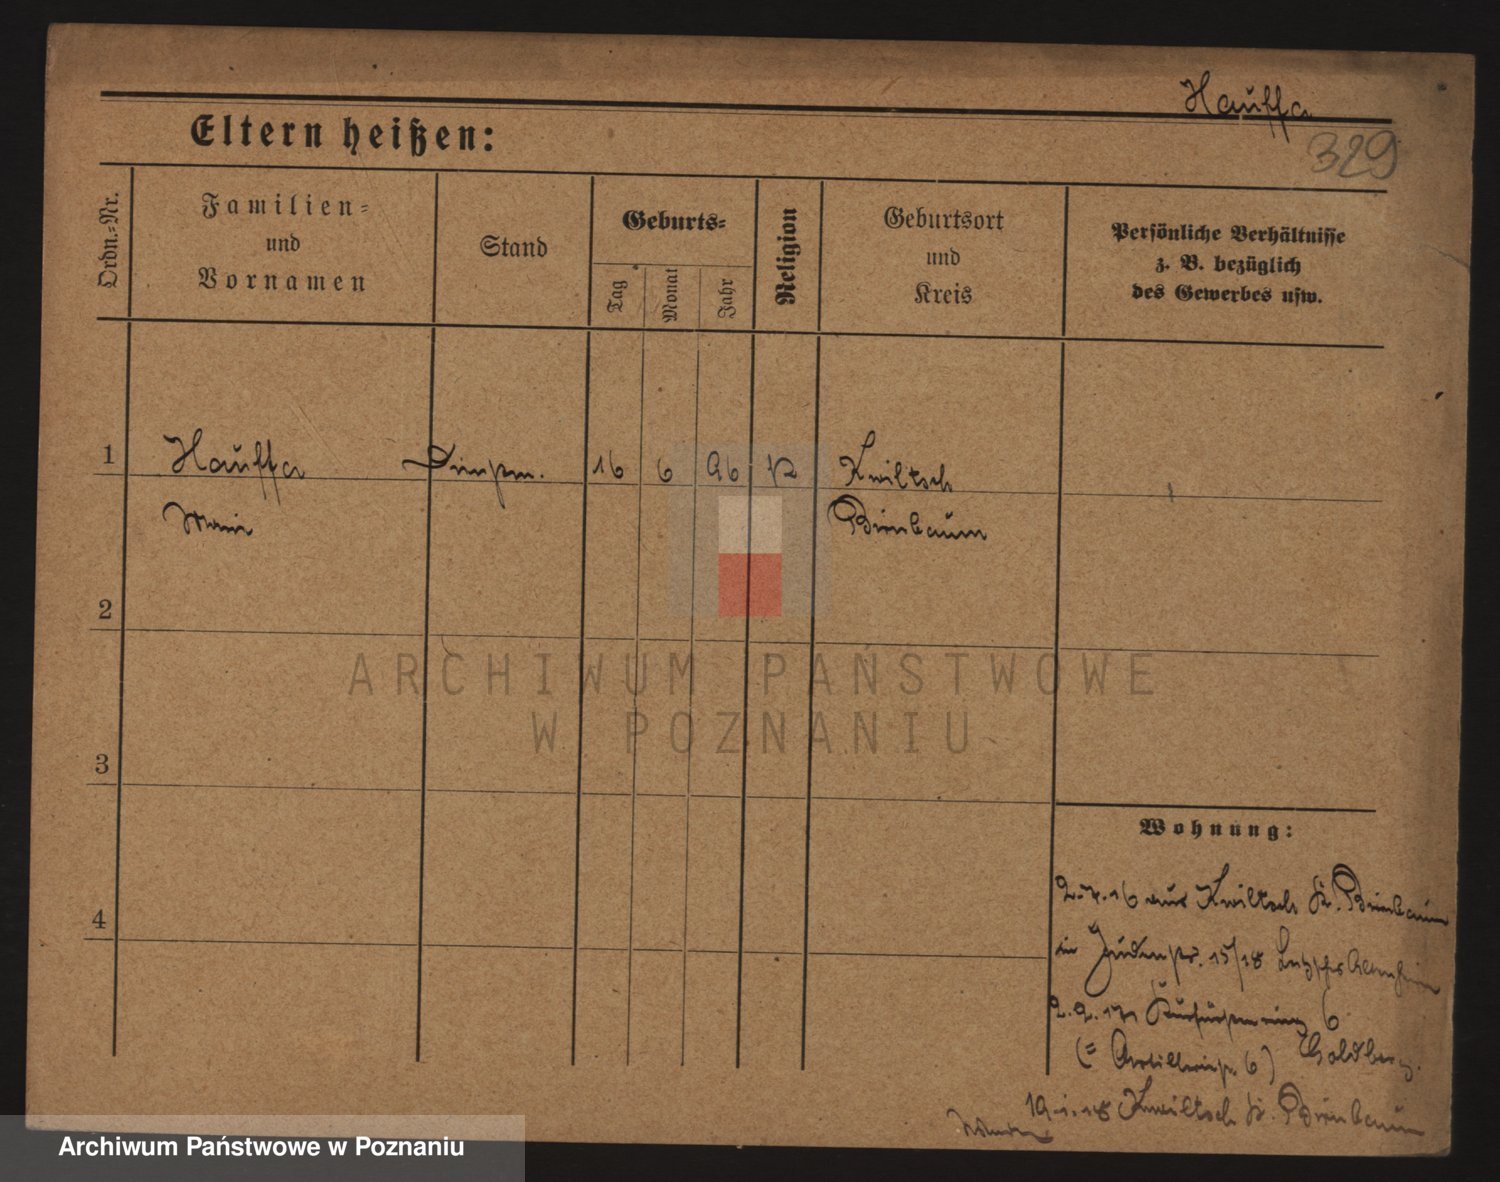 Hauffa
329
Eltern heißen:
Ordn.=Nr.
Familien=
und
Vornamen
Stand
Geburts=
Tag
Monat
Jahr
Religion
Geburtsort
und
Kreis
Persönliche Verhältnisse
z. B. bezüglich
des Gewerbes usw.
1
Hauffa
16 6 96
Kwiltsch
Birnbaum
2
3
4
Wohnung:
2.X.16 aus Kwiltsch Kr. Birnbaum
in Judenstr. 15/18
6
Goldberg
(= Artilleriestr. 6)
19.1.18 Kwiltsch Kr. Birnbaum
ARCHIWUM PAŃSTWOWE
W POZNANIU
Archiwum Państwowe w Poznaniu